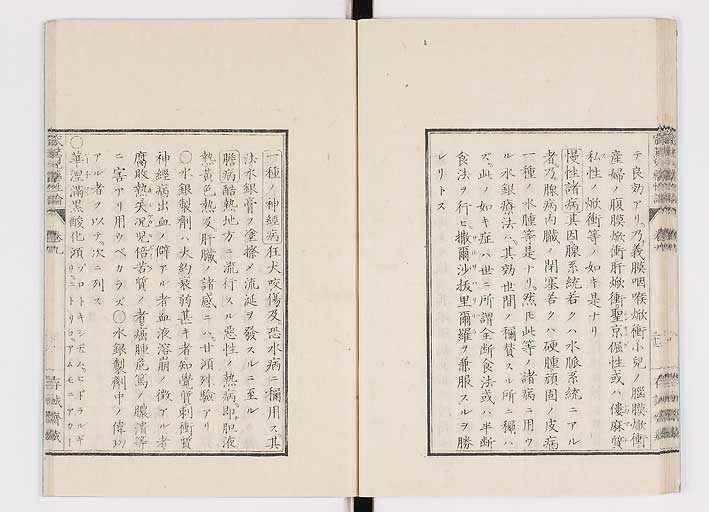 テ良効アリ乃義膜咽喉焮衝小児ノ脳膜焮衝
産婦ノ腹膜焮衝肝焮衝聖京倔性或ハ僂麻質
私性ノ焮衝等ノ如キ是ナリ
慢性諸病其因腺系統若クハ水脈系統ニアル
者乃腺病内臓ノ閉塞若クハ硬腫頑固ノ皮病
一種ノ水腫等是ナリ然𪜈此等ノ諸病ニ用ウ
ル水銀療法ハ其効世間ノ稱賛スル所ニ稱ハ
ズ此ノ如キ症ハ世ニ所謂全断食法或ハ半断
食法ヲ行ヒ撒爾沙抜里爾羅ヲ兼服スルヲ勝
レリトス
一種ノ神経病狂犬咬傷及恐水病ニ稱用ス其
法水銀膏ヲ塗擦メ流涎ヲ發スルニ至ル
膽病酷熱地方ニ流行スル惡性ノ熱病即胆液
熱黄色熱及肝臓ノ諸感ニハ甘汞列験アリ
○水銀製剤ハ大約衰弱甚キ者知覺質刺衝質
神経病出血ノ僻アル者血液溶崩ノ徴アル者
腐敗熱失况児倍苦質ノ者癰腫危篤ノ膿潰等
ニ害アリ用ウベカラズ○水銀製剤中ノ偉功
アル者ヲ以テ次ニ列ス
○華涅満黒酸化汞
巻九
存誠齋蔵